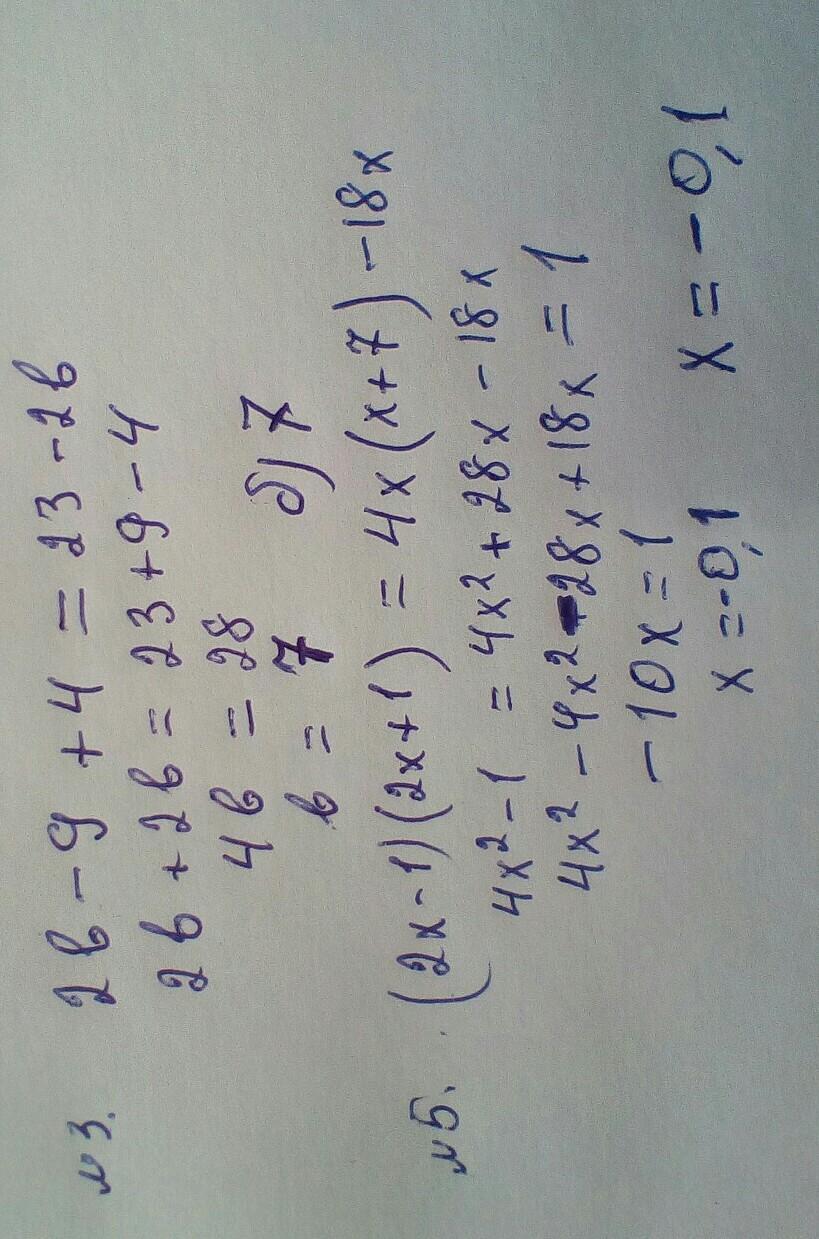 №3. 2в - 9 + 4 = 23 - 2в
2в + 2в = 23 + 9 - 4
4в = 28
в = 7 б) 7
№5. (2x - 1)(2x + 1) = 4x(x + 7) - 18x
4x² - 1 = 4x² + 28x - 18x
4x² - 4x² - 28x + 18x = 1
-10x = 1
x = -0,1 x = -0,1